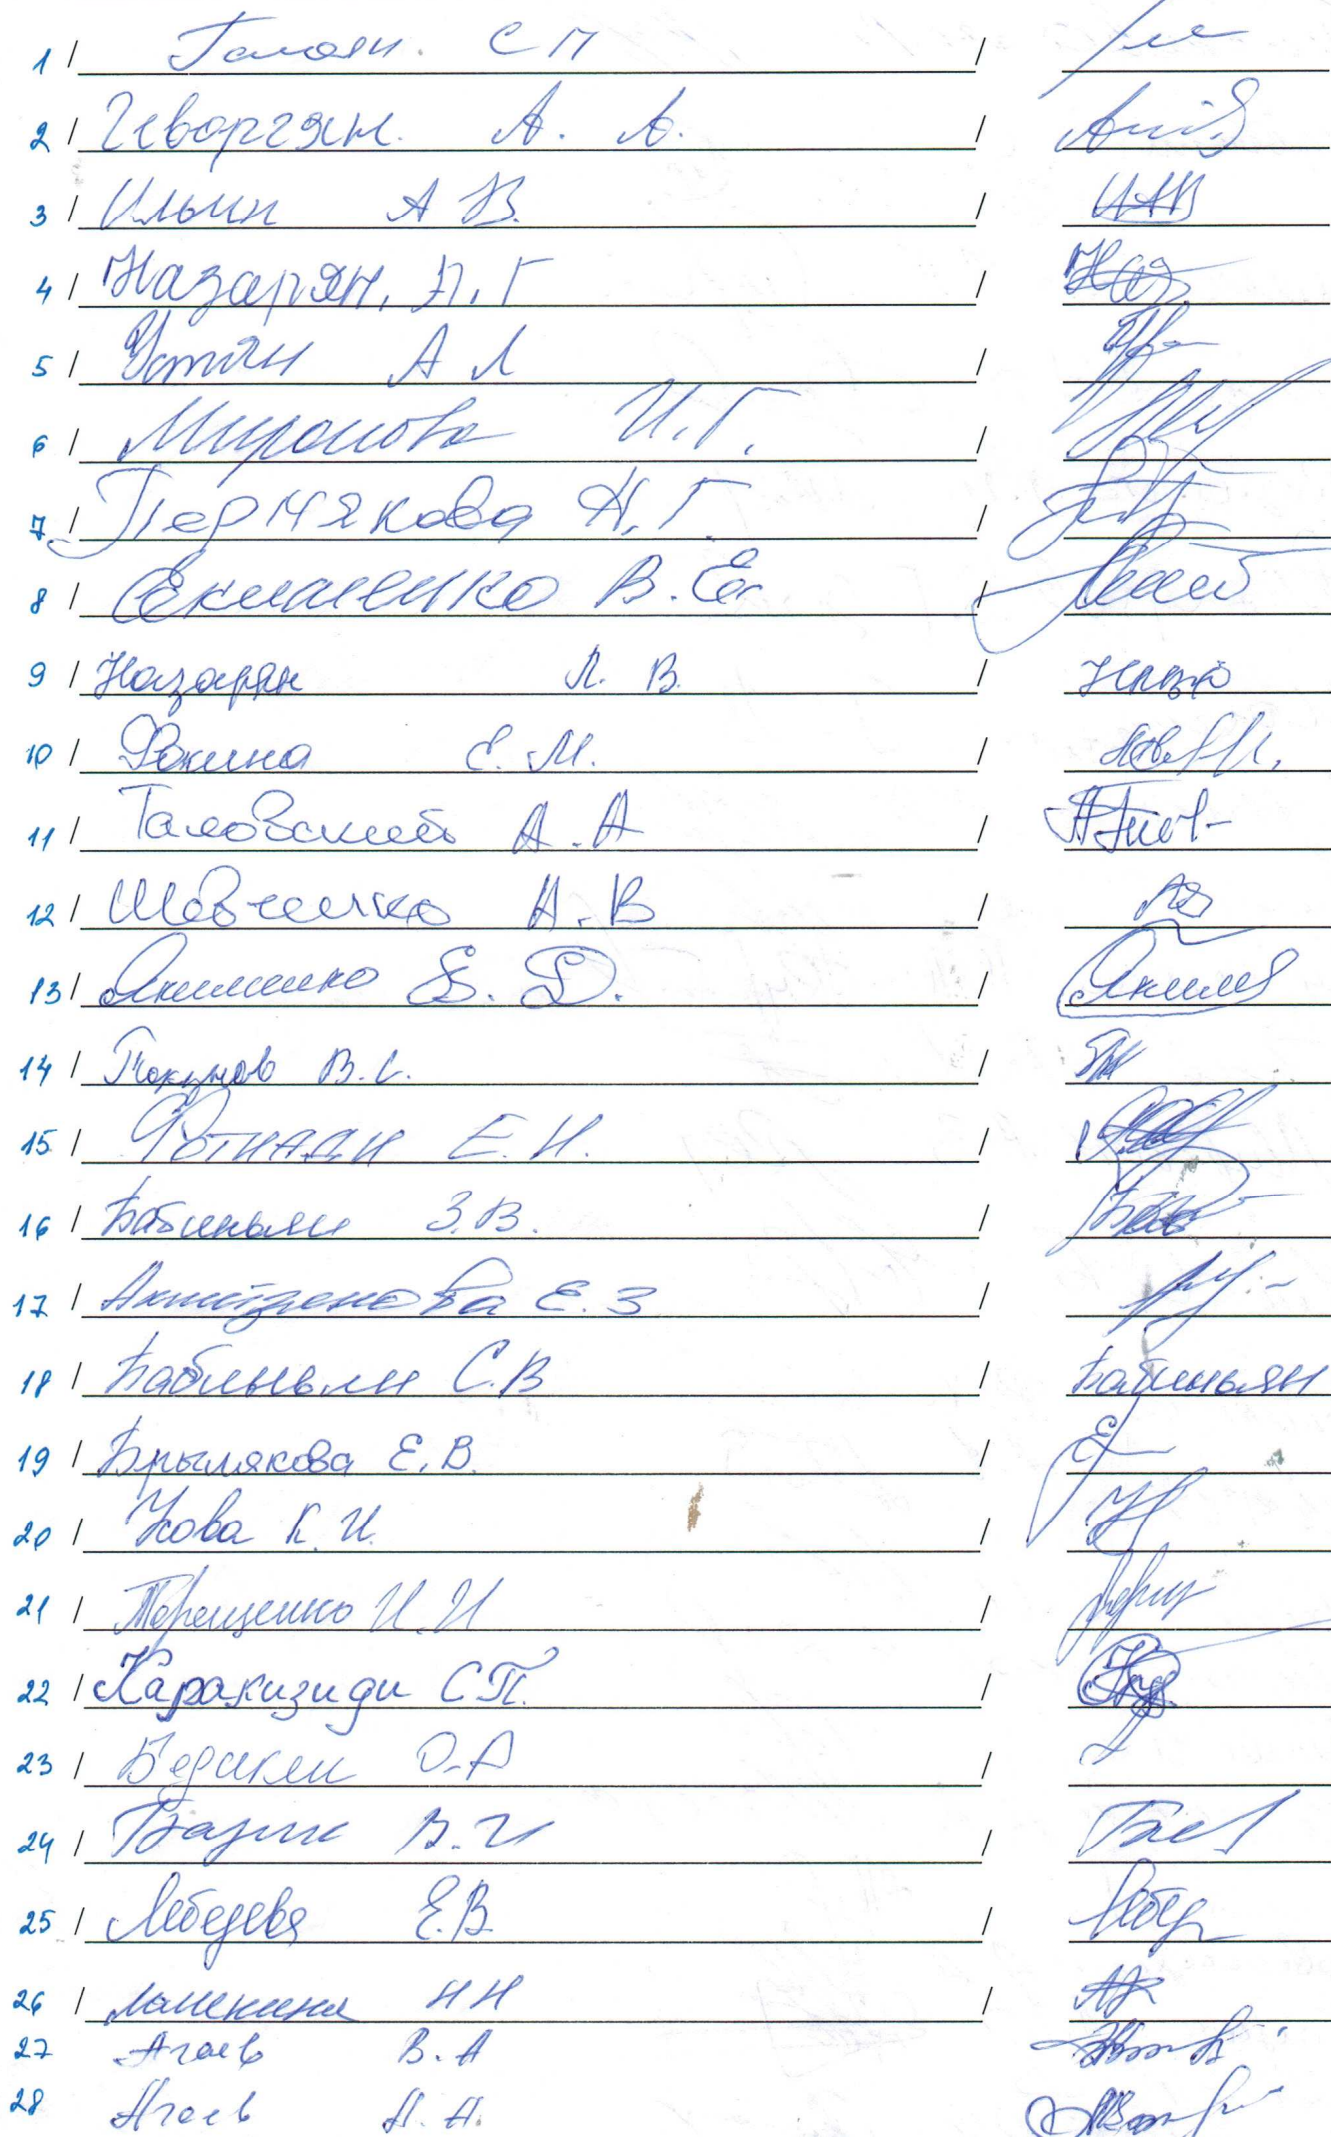 1 / Галоян. С П /
2 / Геворгян. А. А. /
3 / Ильин А В. / ИАВ
4 / Назарян, А. Г / Наз
5 / Устян А Л /
6 / Миронова И. Г. /
7 / Пермякова Н. Г. /
8 / В. Ег /
9 / Назарян Л. В. /
10 / Фокина Е. М. /
11 / Таловский А. А /
12 / Шевченко А. В /
13 / Якименко Е. Д. / Яким
14 / В. С. /
15 / Фотиади Е. Н. /
16 / Бабиньян З. В. /
17 / Е. З /
18 / Бабиньян С. В / Бабиньян
19 / Брылякова Е. В. /
20 / Кова К. И. /
21 / Терещенко И. И /
22 / Каракизиди С П. /
23 / Бедикян О. А /
24 / В. И /
25 / Лебедева Е. В. / Лебед
26 / Н Н /
27 Агаев В. А
28 Агаев А. А.